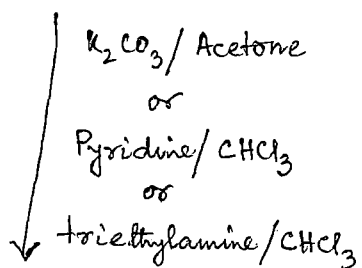 K₂CO₃/Acetone
or
Pyridine/CHCl₃
or
triethylamine/CHCl₃